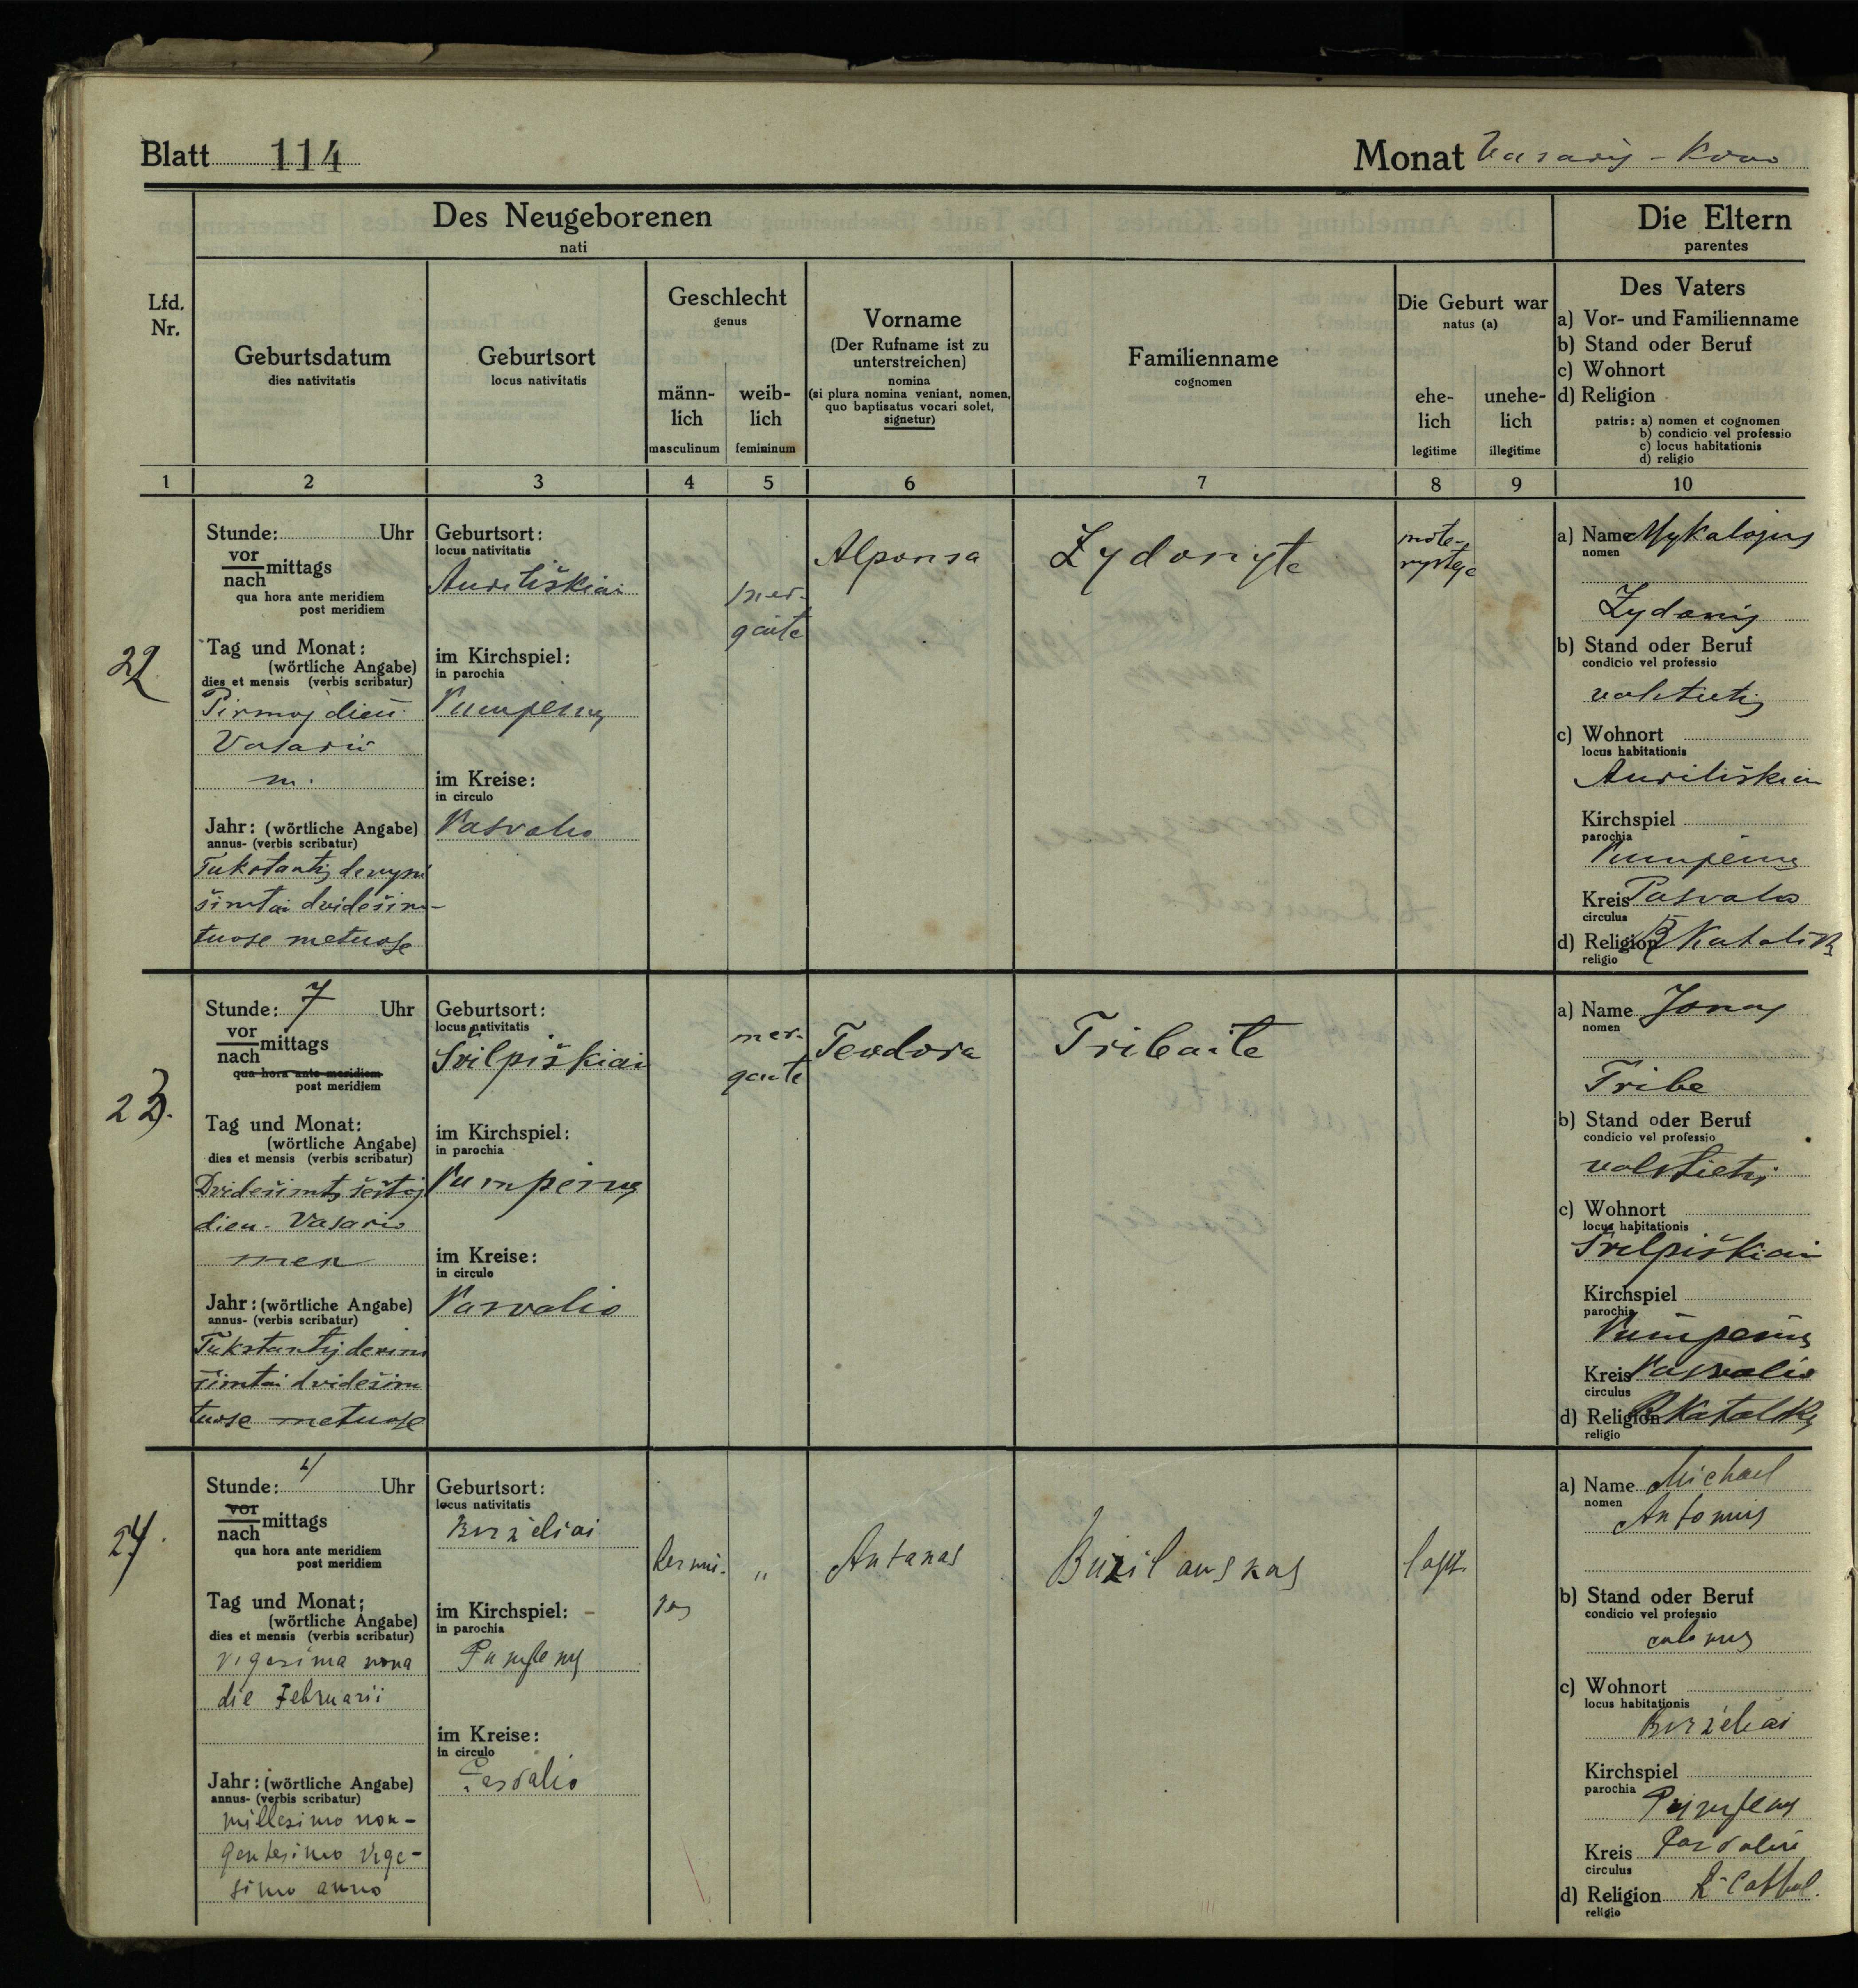 Blatt 114
Monat Vasaris - Kovo
Des Neugeborenen
nati
Die Eltern
parentes
Lfd.
Nr.
Geburtsdatum
dies nativitatis
Geburtsort
locus nativitatis
Geschlecht
genus
männ-
lich
masculinum
weib-
lich
femininum
Vorname
(Der Rufname ist zu
unterstreichen)
nomina
(si plura nomina veniant, nomen,
quo baptisatus vocari solet,
signetur)
Familienname
cognomen
Die Geburt war
natus (a)
ehe-
lich
legitime
unehe-
lich
illegitime
Des Vaters
a) Vor- und Familienname
b) Stand oder Beruf
c) Wohnort
d) Religion
patris: a) nomen et cognomen
b) condicio vel professio
c) locus habitationis
d) religio
1 2 3 4 5 6 7 8 9 10
22
Stunde: Uhr
vor
nach mittags
qua hora ante meridiem
post meridiem
Tag und Monat:
(wörtliche Angabe)
dies et mensis (verbis scribatur)
Pirmoj dien
Vasario
m.
Jahr: (wörtliche Angabe)
annus- (verbis scribatur)
Tukstantis devyni
šimtai dvidešim-
tuose metuose
Geburtsort:
locus nativitatis
Auriliškiai
im Kirchspiel:
in parochia
Pumpėnų
im Kreise:
in circulo
Pasvalio
mer-
gaite
Alponsa
Zydonyte
mote-
rystėje
a) Name Mykalojus
nomen
Zydonis
b) Stand oder Beruf
condicio vel professio
valstietis
c) Wohnort
locus habitationis
Auriliškiai
Kirchspiel
parochia
Pumpėnų
Kreis Pasvalio
circulus
d) Religion R Katalikų
religio
23.
Stunde: 7 Uhr
vor
nach mittags
qua hora ante meridiem
post meridiem
Tag und Monat:
(wörtliche Angabe)
dies et mensis (verbis scribatur)
Dvidešimts šeštoj
dien. Vasario
men
Jahr: (wörtliche Angabe)
annus- (verbis scribatur)
Tukstantis devini
šimtai dvidešim
tuose metuose
Geburtsort:
locus nativitatis
Svilpiškiai
im Kirchspiel:
in parochia
Pumpėnų
im Kreise:
in circulo
Pasvalio
mer-
gaite
Teodora
Tribaite
a) Name Jonas
nomen
Tribe
b) Stand oder Beruf
condicio vel professio
valstietis
c) Wohnort
locus habitationis
Svilpiškiai
Kirchspiel
parochia
Pumpėnų
Kreis Pasvalio
circulus
d) Religion R Katalikų
religio
24.
Stunde: 4 Uhr
vor
nach mittags
qua hora ante meridiem
post meridiem
Tag und Monat:
(wörtliche Angabe)
dies et mensis (verbis scribatur)
vigesima nona
die Februarii
Jahr: (wörtliche Angabe)
annus- (verbis scribatur)
millesimo non-
gentesimo vige-
simo anno
Geburtsort:
locus nativitatis
Birželiai
im Kirchspiel:
in parochia
Pumpenų
im Kreise:
in circulo
Pasvalio
"
Antanas
Buzilauskas
a) Name Michael
nomen
Antonius
b) Stand oder Beruf
condicio vel professio
colonus
c) Wohnort
locus habitationis
Birželiai
Kirchspiel
parochia
Pumpenų
Kreis Pasvalio
circulus
d) Religion R-Cathol.
religio